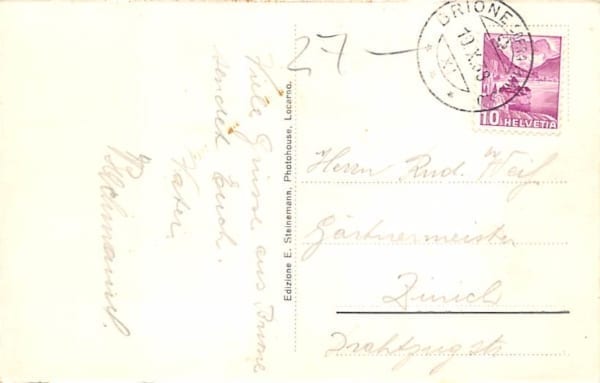 Viele Grüsse aus Brione
sendet Euch.
Vater.
27 —
Edizione E. Steinemann, Photohouse, Locarno.
BRIONE
10
HELVETIA
Herrn Rud. Weiß
Gärtnermeister
Zürich
Drahtzugstr.